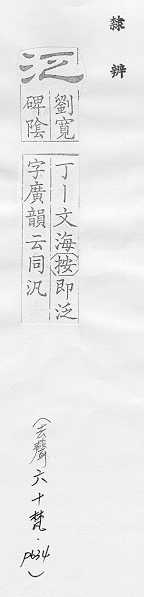 隸辨
劉寬
碑陰
丁丨文海按即泛
字廣韻云同汎
(去聲六十梵.p634)